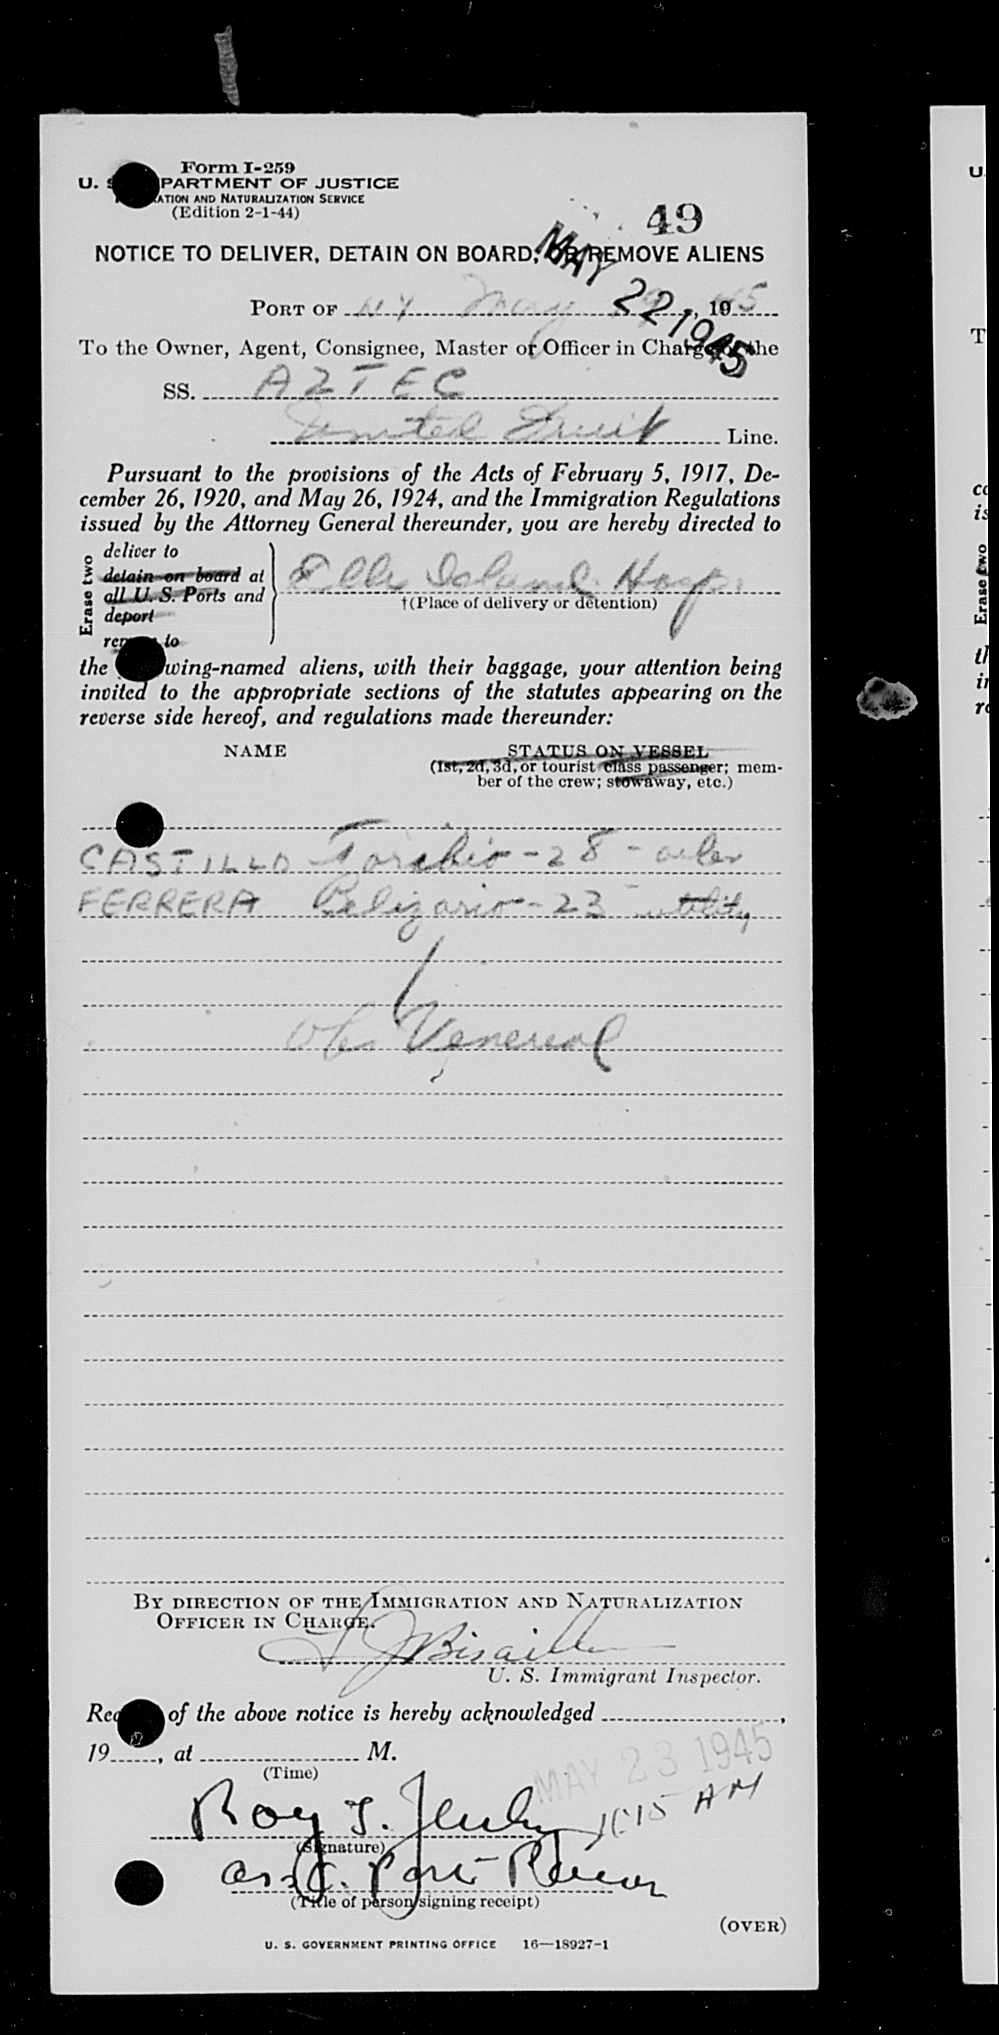 Form I-259
U. S. DEPARTMENT OF JUSTICE
IMMIGRATION AND NATURALIZATION SERVICE
(Edition 2-1-44)
49
NOTICE TO DELIVER, DETAIN ON BOARD, OR REMOVE ALIENS
MAY 22 1945
PORT OF NY May, 1945
To the Owner, Agent, Consignee, Master or Officer in Charge of the
SS. AZTEC
United Fruit Line.
Pursuant to the provisions of the Acts of February 5, 1917, De-
cember 26, 1920, and May 26, 1924, and the Immigration Regulations
issued by the Attorney General thereunder, you are hereby directed to
Erase two
deliver to
detain on board at
all U. S. Ports and
deport
remove to
Ellis Island Hosp.
†(Place of delivery or detention)
the following-named aliens, with their baggage, your attention being
invited to the appropriate sections of the statutes appearing on the
reverse side hereof, and regulations made thereunder:
NAME STATUS ON VESSEL
(1st, 2d, 3d, or tourist class passenger; mem-
ber of the crew; stowaway, etc.)
CASTILLO Toribio - 28 - oiler
FERRERA Belizario - 23 - utility
Obs Venereal
BY DIRECTION OF THE IMMIGRATION AND NATURALIZATION
OFFICER IN CHARGE.
U. S. Immigrant Inspector.
Receipt of the above notice is hereby acknowledged ,
19 , at M.
(Time)
MAY 23 1945
AM
Roy
(Signature)
Asst. Port
(Title of person signing receipt)
(OVER)
U. S. GOVERNMENT PRINTING OFFICE 16—18927-1